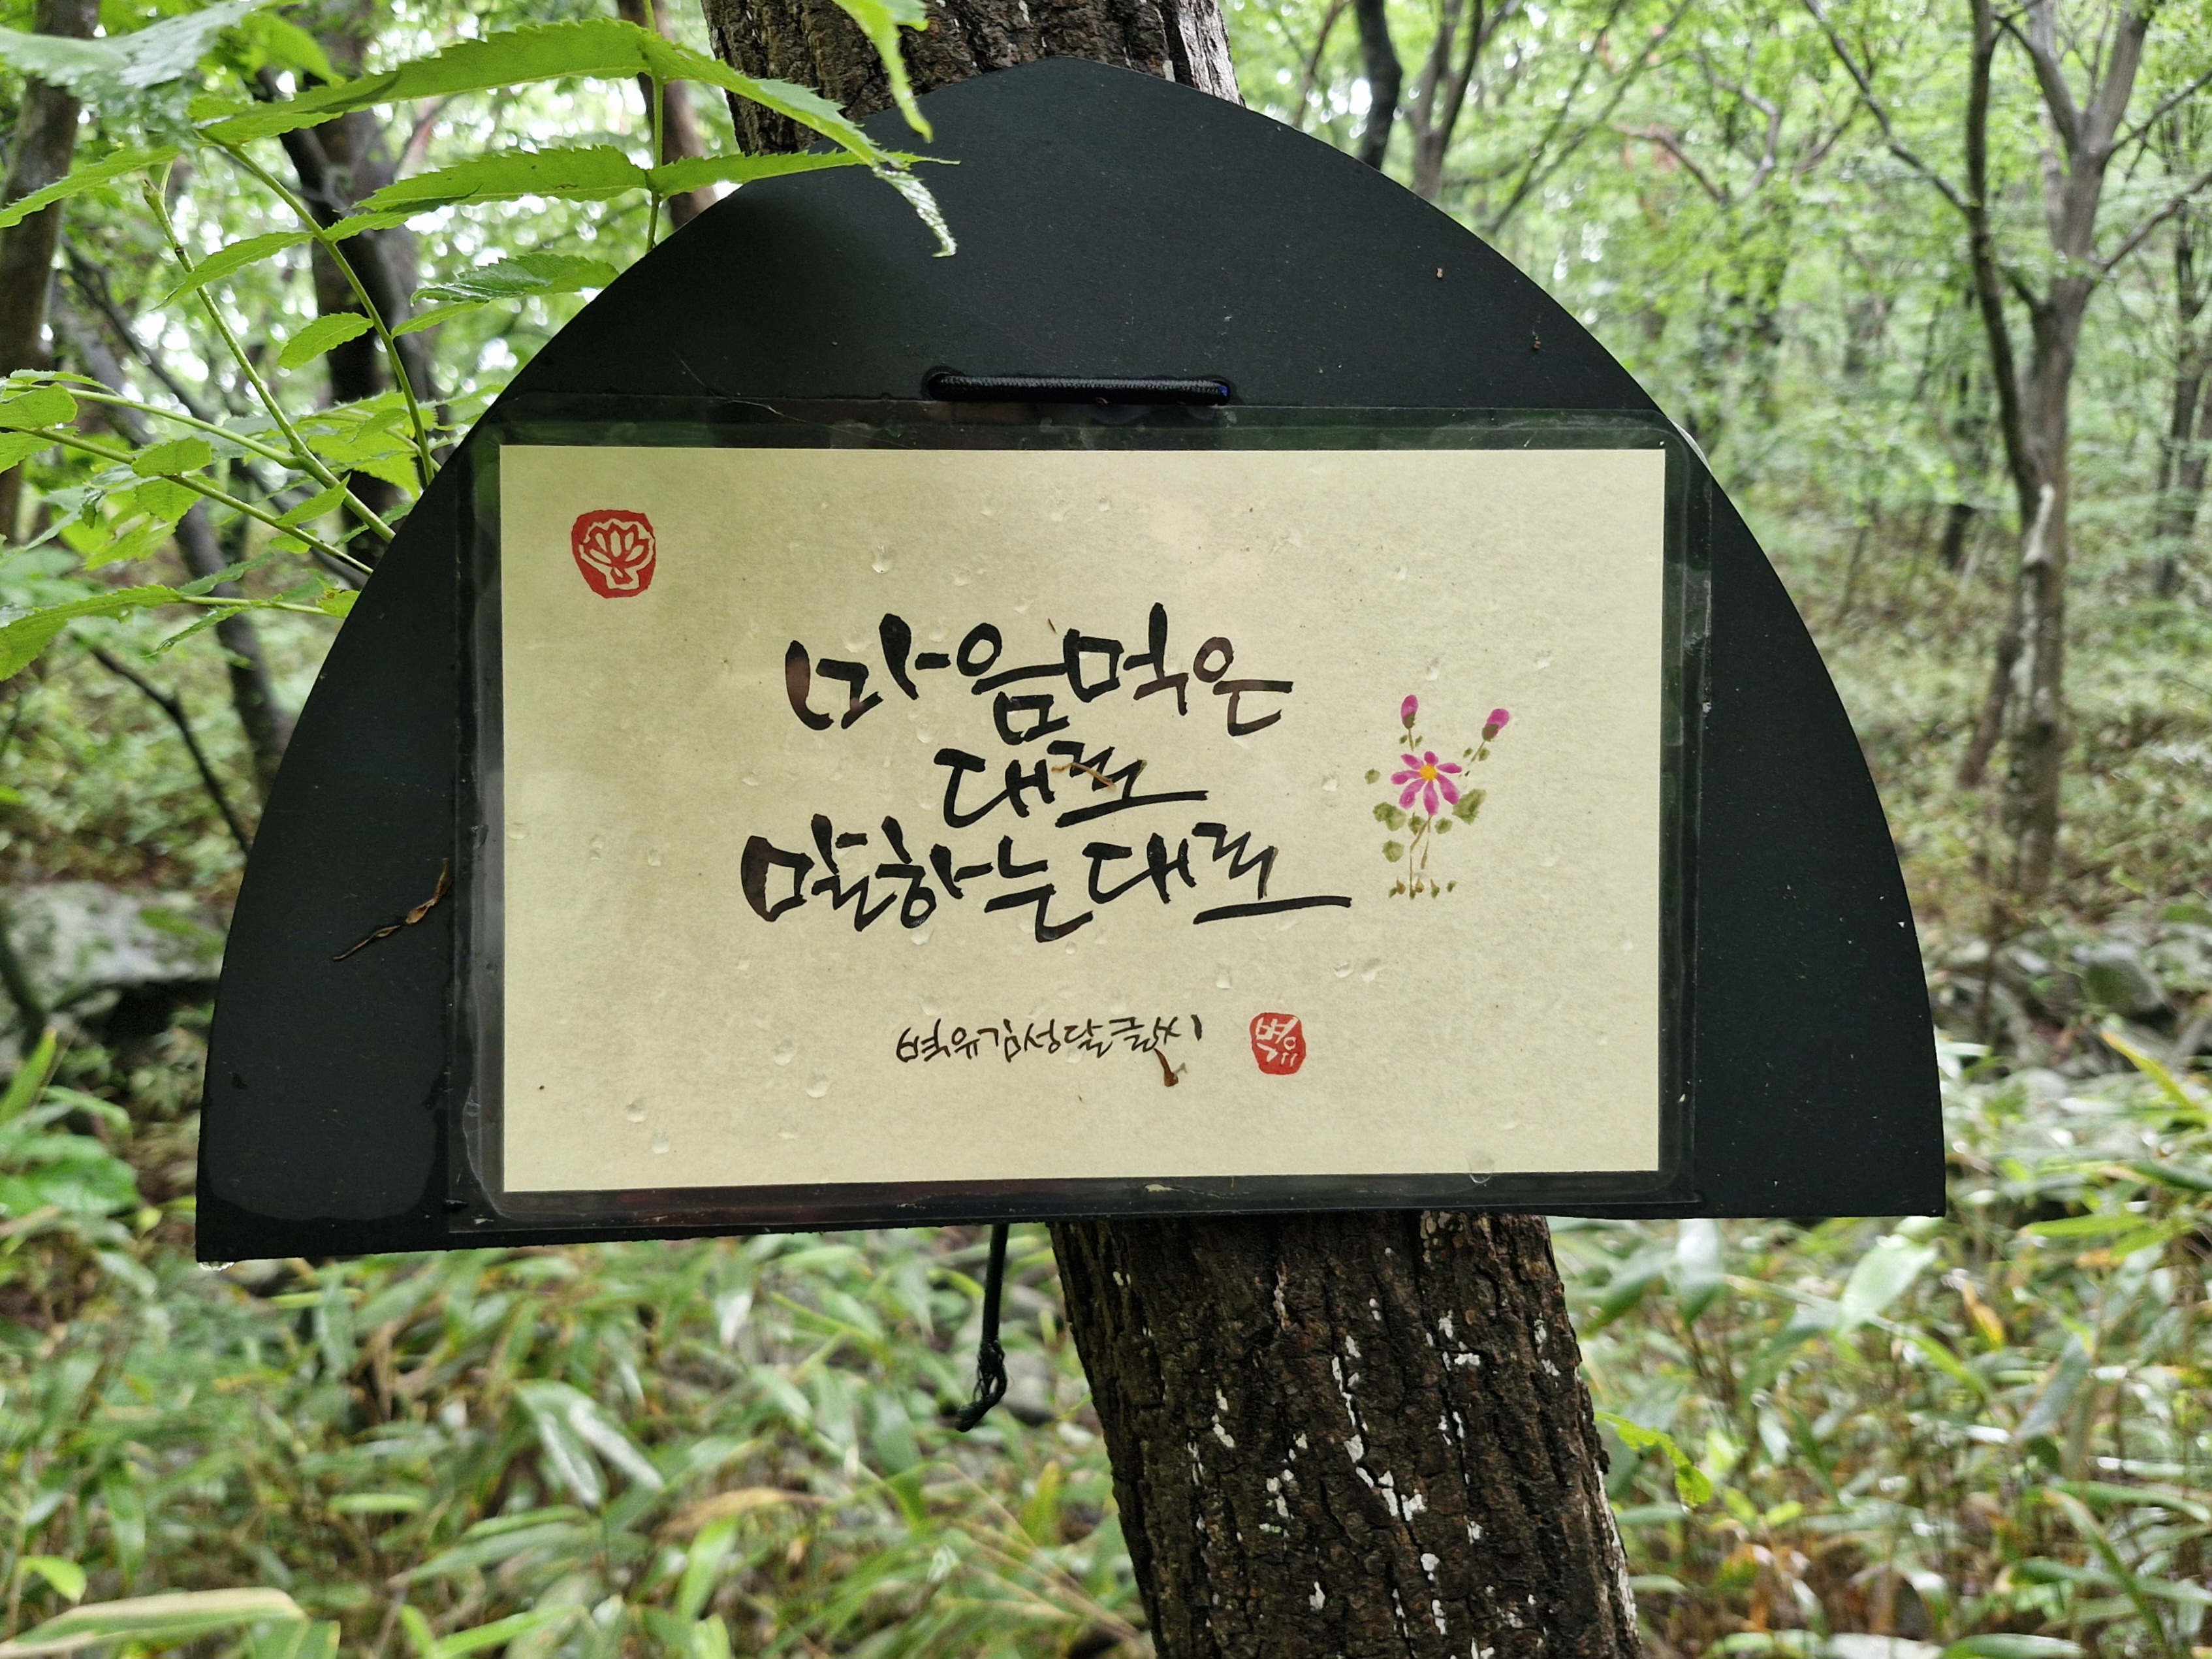 마음먹은
대로
말하는대로
벽유김성달글씨
벽유